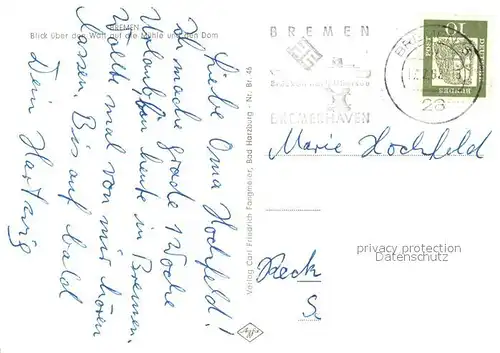 BREMEN
Blick über den Wall auf die Mühle und den Dom
Liebe Oma Hochfeld!
Ich mache grade 1 Woche
Urlaub, bin heute in Bremen.
Wollte mal von mir hören
lassen. Bis auf bald
Dein Hartwig
Verlag Carl Friedrich Fangmeier, Bad Harzburg - Nr. Br. 46
BREMEN
BREMERHAVEN
BREMEN
28
DEUTSCHE
BUNDESPOST
10
Marie Hochfeld
privacy protection
Datenschutz